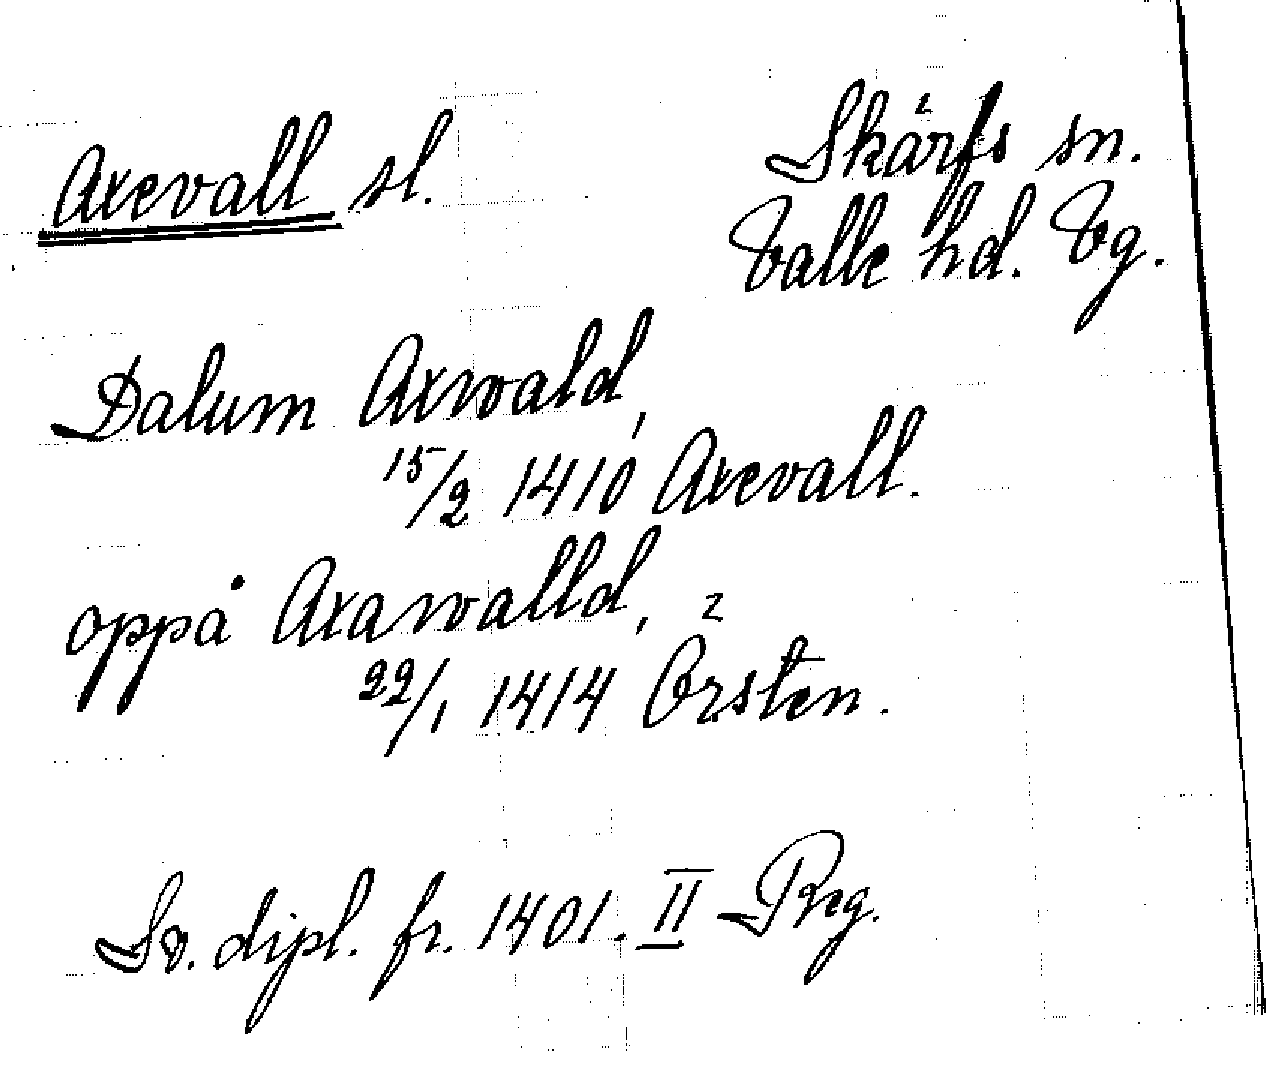 Axevall sl.
Skärfs sn.
Valle hd. Vg.
Datum Axwald,
15/2 1410 Axevall.
oppå Axawalld,
22/1 1414 Örsten.
Sv. dipl. fr. 1401. II Reg.